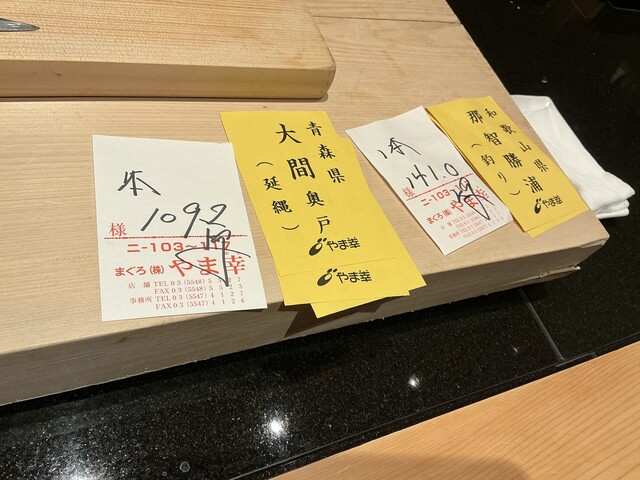 本
109.2
様
ニ-103~107
まぐろ(株) やま幸
店舗 TEL 03 (5548) 5
FAX 03 (5548) 5523
事務所 TEL 03 (5547) 4127
FAX 03 (5547) 4126
青森県
大間奥戸
(延縄)
やま幸
やま幸
1本
141.0
様
ニ-103
まぐろ(株) やま幸
和歌山県
那智勝浦
(釣り)
やま幸